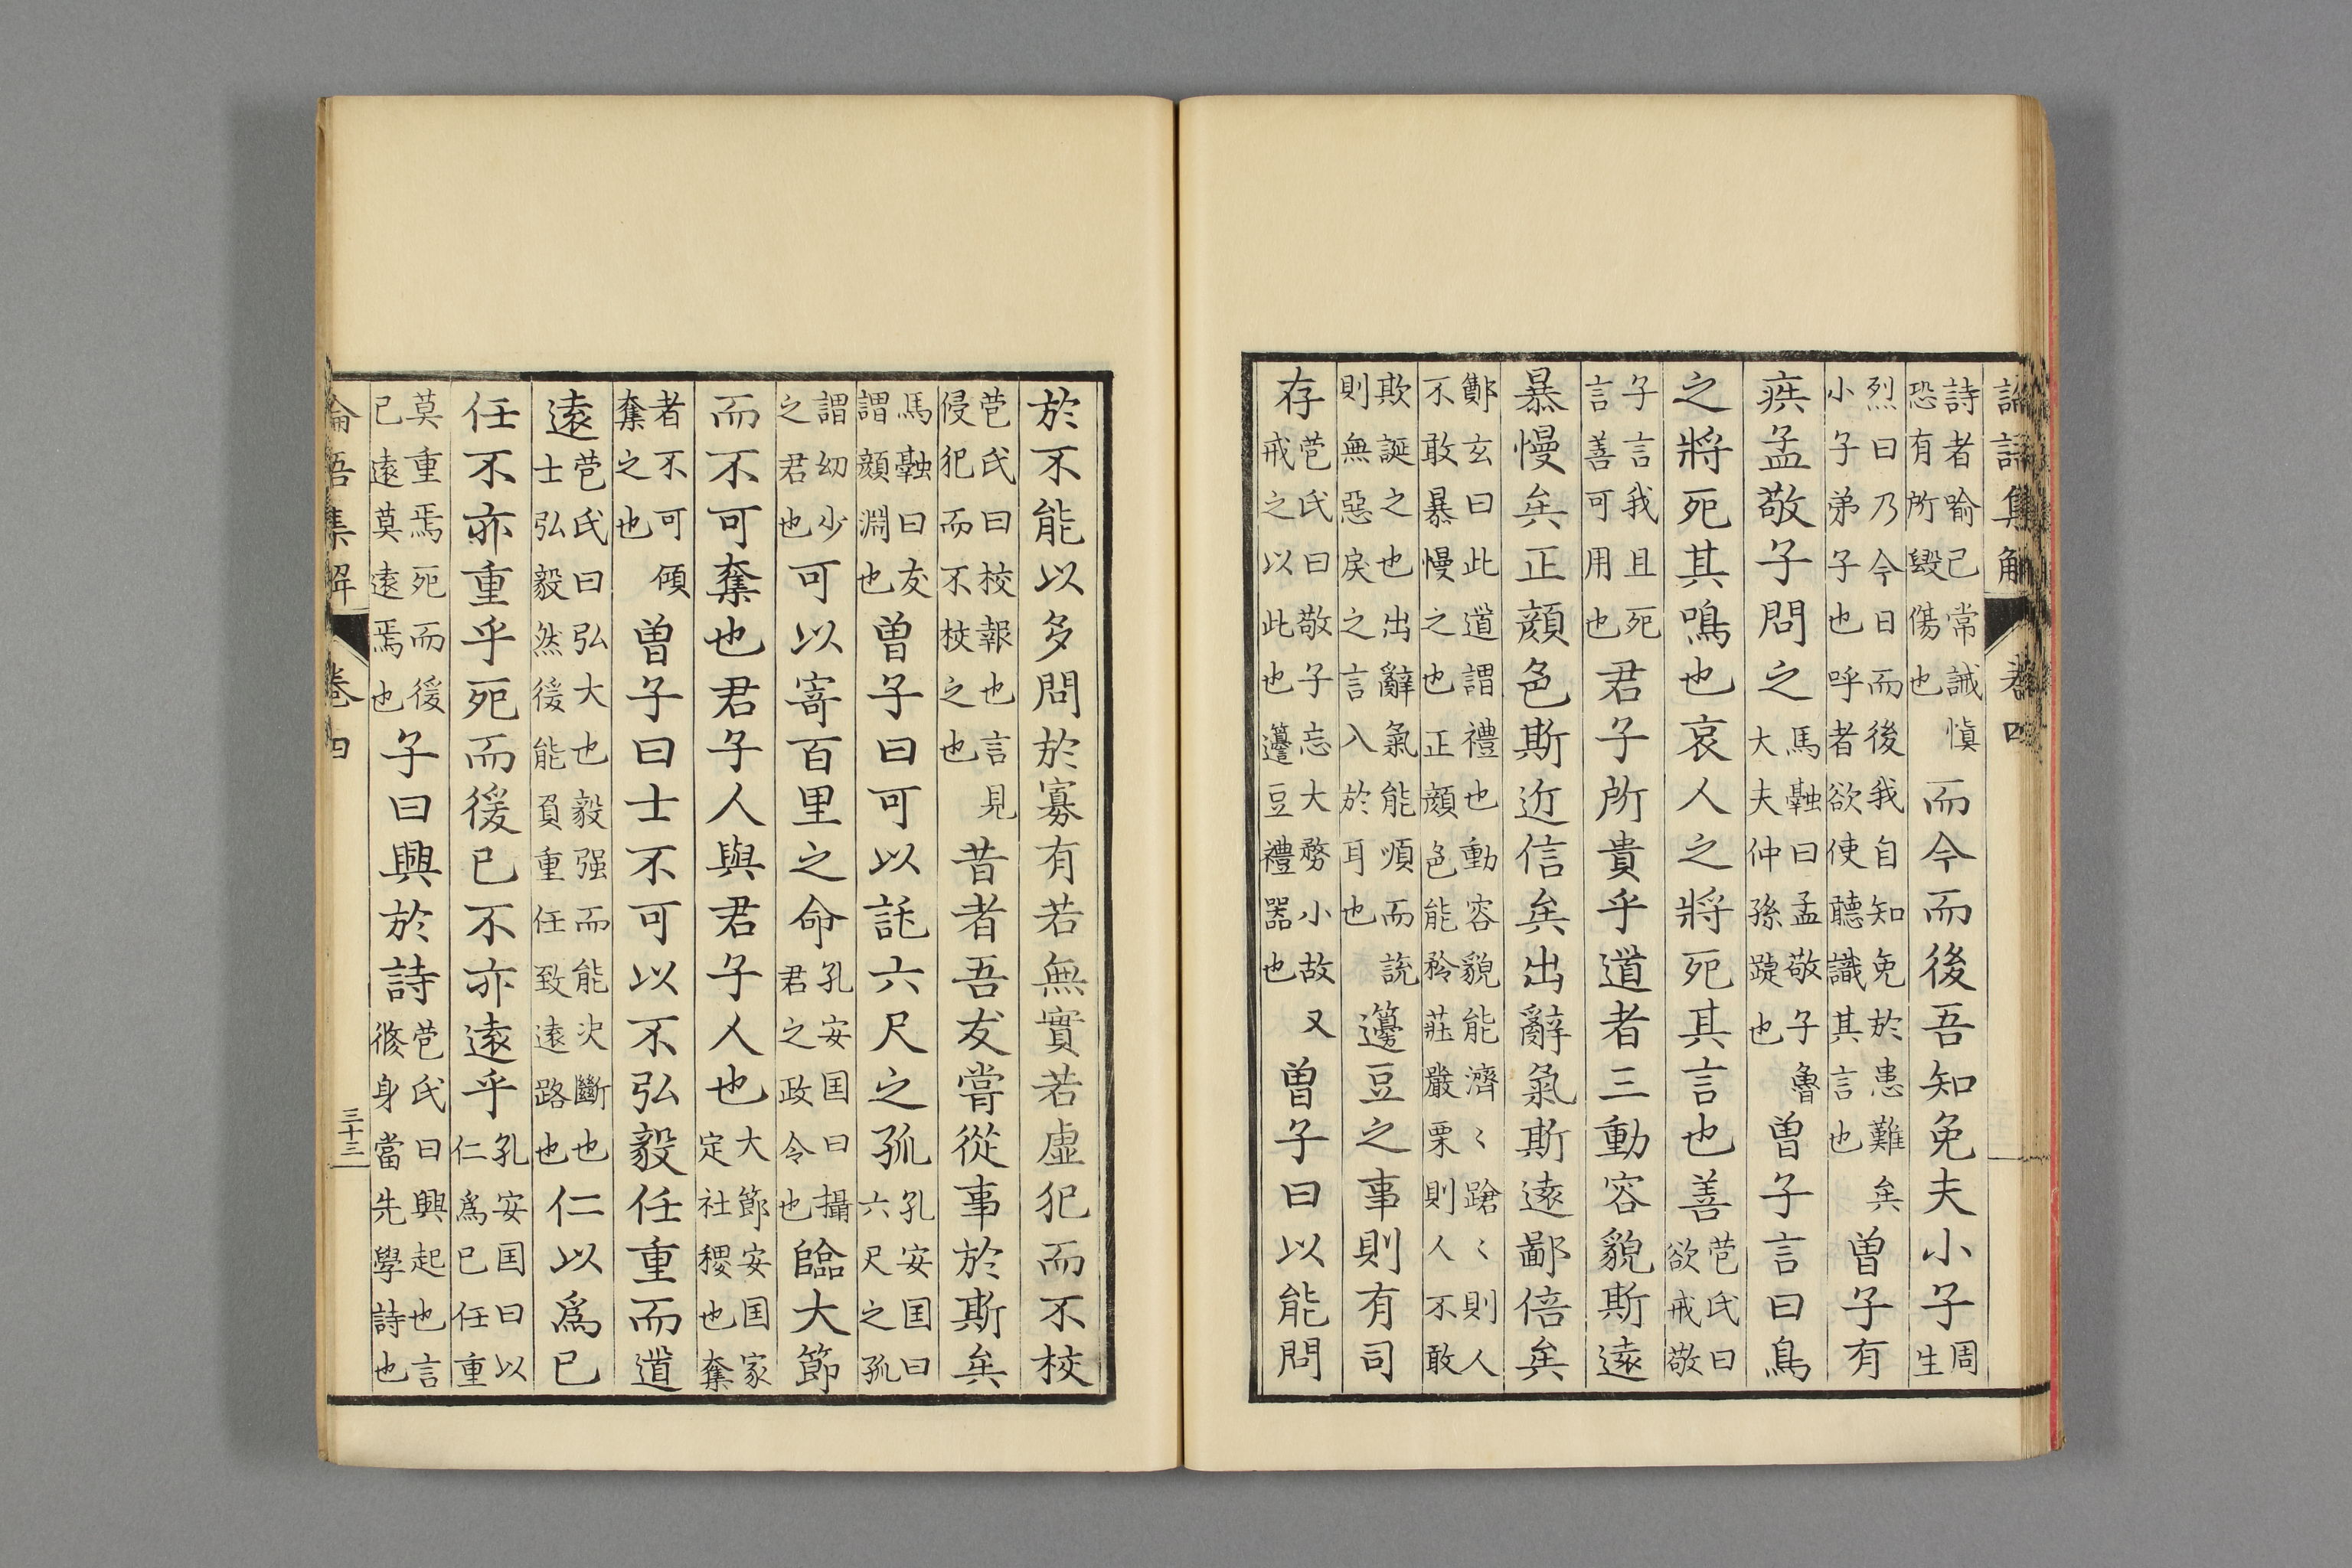 論語集解 卷四
詩者喻己常誡慎恐有所毀傷也而今而後吾知免夫小子周生
烈曰乃今日而後我自知免於患難矣小子弟子也呼者欲使聽識其言也曾子有
疾孟敬子問之馬融曰孟敬子魯大夫仲孫踕也曾子言曰鳥
之將死其鳴也哀人之將死其言也善苞氏曰欲戒敬
子言我且死言善可用也君子所貴乎道者三動容貌斯遠
暴慢矣正顏色斯近信矣出辭氣斯遠鄙倍矣
鄭玄曰此道謂禮也動容貌能濟〻蹌〻則人不敢暴慢之也正顏色能矜莊嚴栗則人不敢
欺誕之也出辭氣能順而說則無惡戾之言入於耳也籩豆之事則有司
存苞氏曰敬子忘大務小故又戒之以此也籩豆禮器也曾子曰以能問
於不能以多問於寡有若無實若虛犯而不校
苞氏曰校報也言見侵犯而不校之也昔者吾友嘗從事於斯矣
馬融曰友謂顏淵也曾子曰可以託六尺之孤孔安国曰六尺之孤
謂幼少之君也可以寄百里之命孔安国曰攝君之政令也臨大節
而不可奪也君子人與君子人也大節安国家定社稷也奪
者不可傾奪之也曾子曰士不可以不弘毅任重而道
遠苞氏曰弘大也毅强而能決斷也士弘毅然後能負重任致遠路也仁以爲己
任不亦重乎死而後已不亦遠乎孔安国曰以仁爲己任重
莫重焉死而後已遠莫遠焉也子曰興於詩苞氏曰興起也言修身當先學詩也
論語集解 卷四 三十三